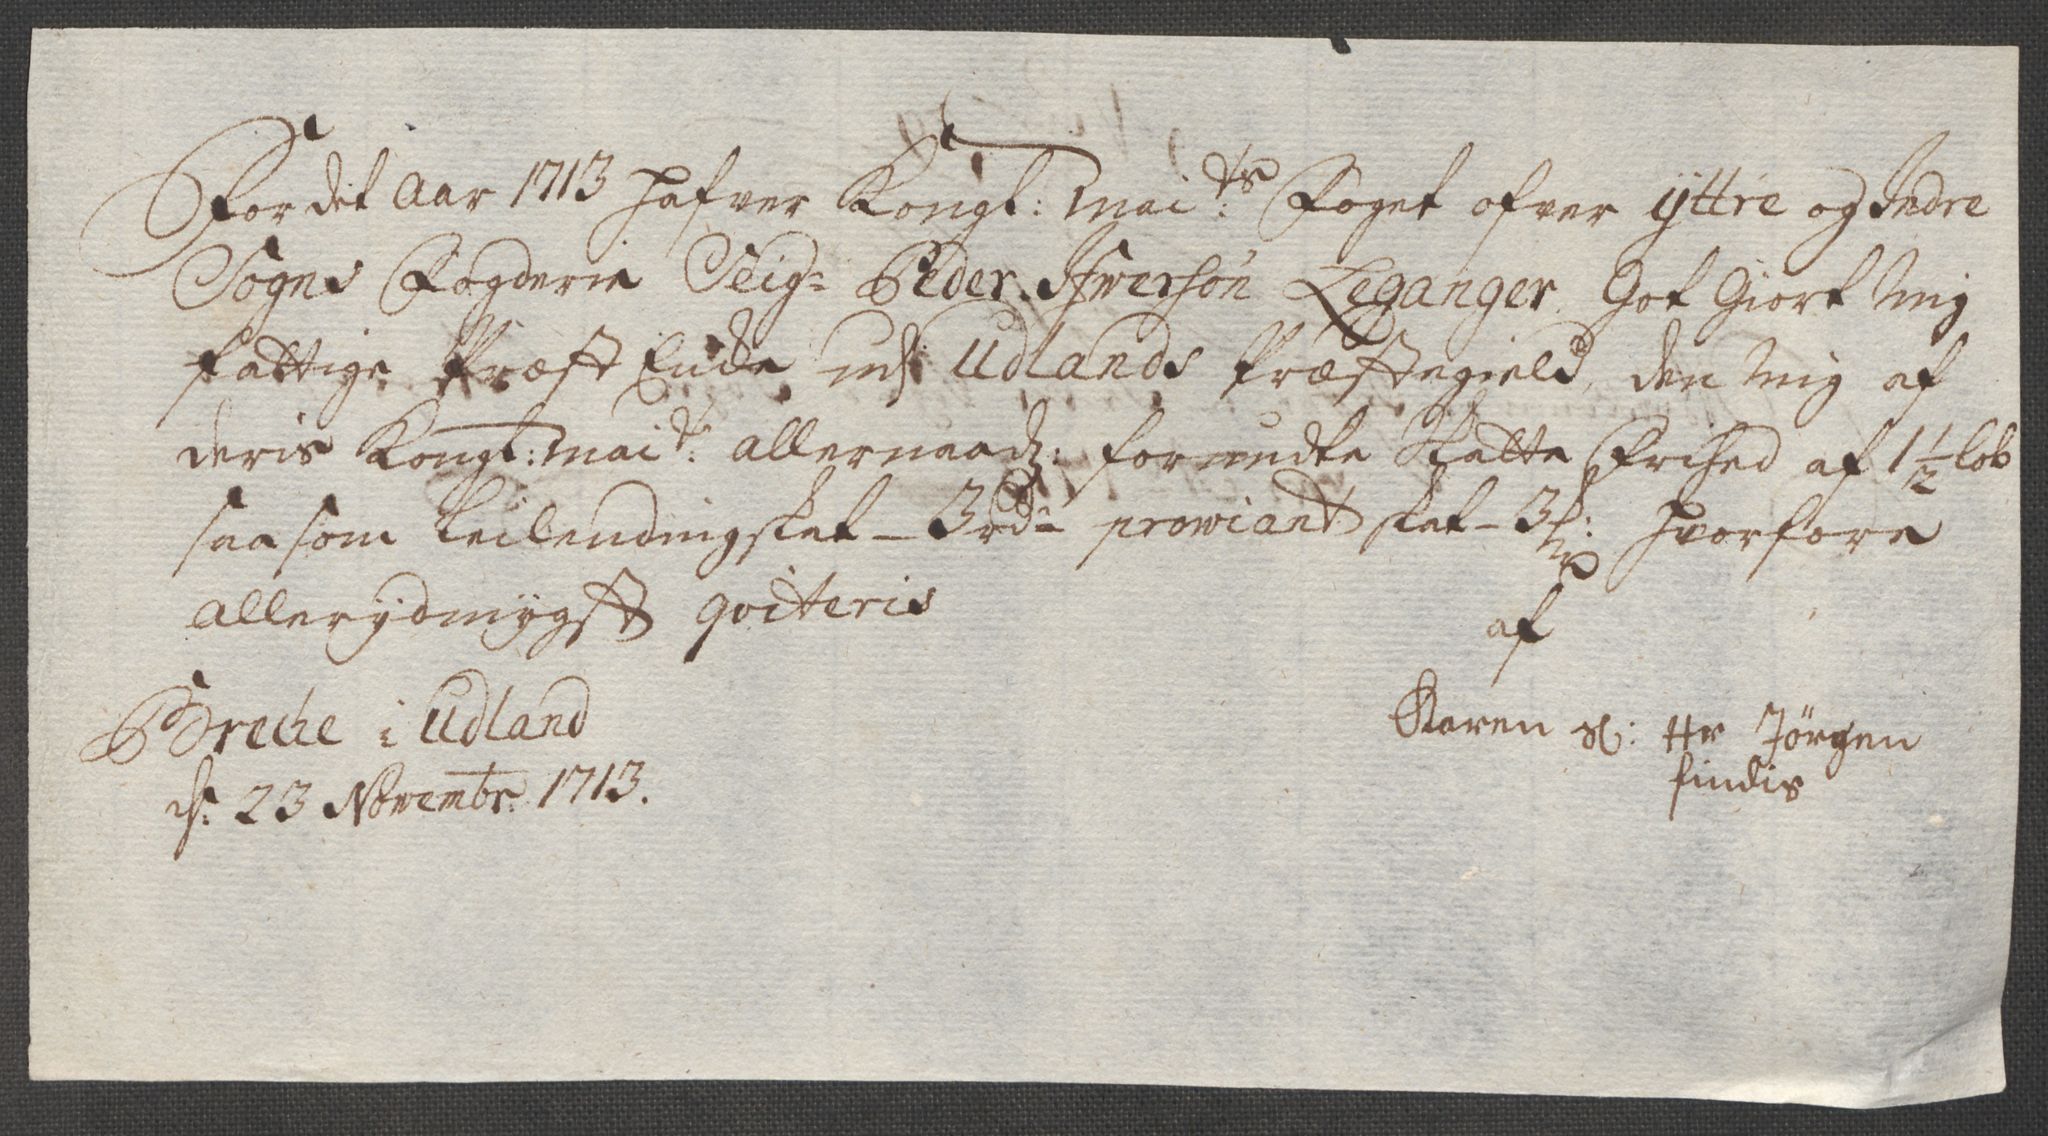 For det Aar 1713 hafver Kongl: Mai:ts Foget ofver ÿttre og Indre
Sogns Fogderie Seigr Peder Ifwersøn Leganger Got Giort Mig
fattige Præst Encke udj Udlands Præstegield, den Mig af
deris Kongl: Mait: allernaad: forundte Skatte Frihed af 1 1/2 løb
saasom Leilendingskat - 3 rdr prowiant skat - 3 hvorfore
allerÿdmÿgst qviteris
af
Breche i Udland
d: 23 Novembr: 1713.
Karen Sl: Hr Jörgen
findis